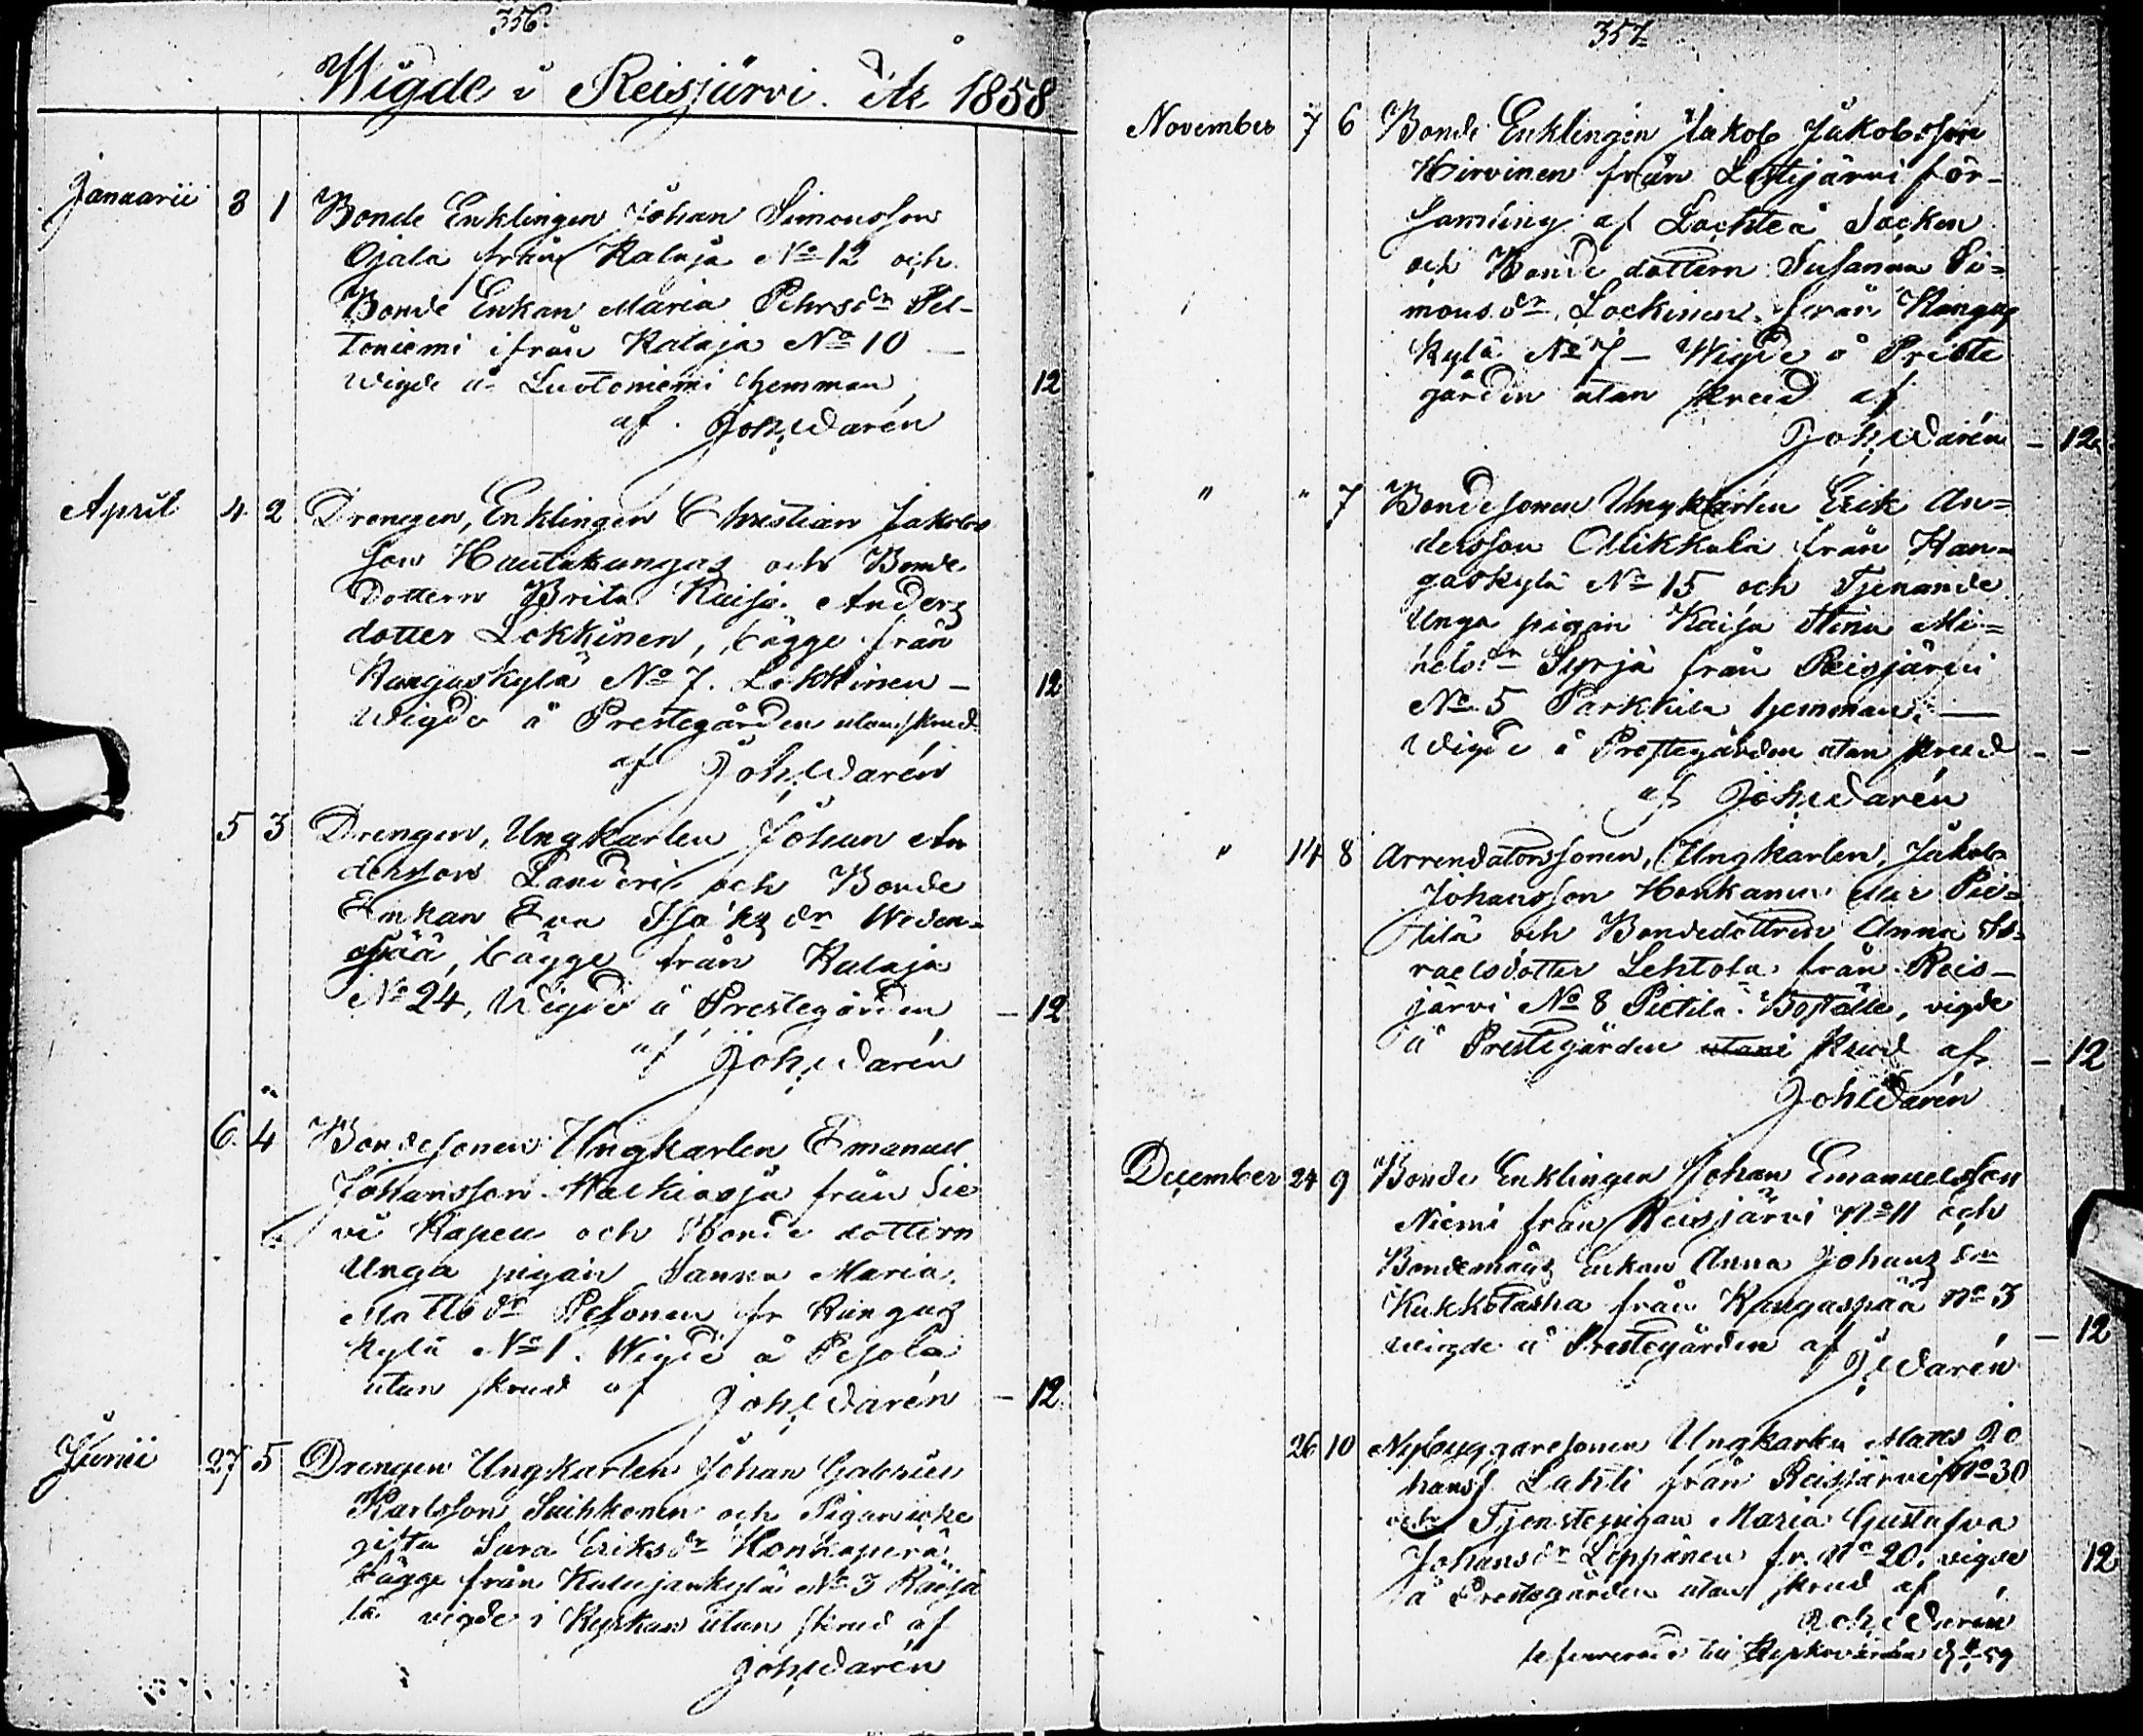 356.
Wigde i Reisjärvi. År 1858
Januarii 3 1 Bonde Enklingen Johan Simonsson
Ojala från Kalaja No 12 och
Bonde Enkan Maria Pehrsdr Pel-
toniemi ifrån Kalaja No 10 —
wigde å Luotoniemi hemman 12
af Joh. Warén
April 4 2 Drengen, Enklingen Christian Jakobs
son Hautakangas och Bonde
dottern Brita Kaisa Anders
dotter Lokkinen, bägge från
Kangaskylä No 7. Lokkinen — 12
Wigde å Prestegården utan skrud
af Joh. Warén
5 3 Drengen, Ungkarlen Johan An
dersson Landeri och Bonde
Enkan Eva Isaks dr Weden-
pää, bägge från Kalaja
No 24, Wigde å Prestegården — 12
af Joh. Warén
6. 4 Bondesonen Ungkarlen Emanuel
Johansson Walkiasja från Sie
vi Kapell och Bonde dottern
Unga pigan Sanna Maria
Matts dr Pesonen fr Kangas
kylä No 1. Wigde å Pesola
utan skrud af Joh. Warén — 12.
Junii 27 5 Drengen Ungkarlen Johan Gabriel
Karlsson Suihkonen och Pigan icke
gifta Sara Eriksdr Honkaperä
bägge från Kalajankylä No 3 Kaisa
la wigde i Kyrkan utan skrud af
Joh. Warén
357.
November 7 6 Bonde Enklingen Jakob Jakobsson
Hirvinen från Lestijärvi för-
samling af Lochteå Socken
och Bonde dottern Susanna Si=
mons dr Lockinen från Kangas
kylä No 7 — Wigde å Preste
gården utan skrud af
Joh. Warén — 12.
" " 7 Bondesonen Ungkarlen Erik An=
dersson Mikkula från Kan-
gaskylä No 15 och Tjenande
Unga pigan Kaisa Stina Mi=
helsdr Syrjä från Reisjärvi
No 5 Parkkila hemman. —
Wigde å Prestegården utan skrud — —
af Joh. Warén
" 14 8 Arrendatorssonen, Ungkarlen, Jakob
Johansson Honkanen eller Pie=
tilä och Bondedottren Anna Is=
raelsdotter Lehtola från Reis-
järvi No 8 Pietilä Boställe, vigde
å Prestegården utani skrud af — 12
Joh. Warén
December 24 9 Bonde Enklingen Johan Emanuelsson
Niemi från Reisjärvi No 11 och
Bondemans Enkan Anna Johans dr
Kukkotasha från Kangaspää No 3
wigde å Prestegården af — 12
J. Warén
26 10 Nybyggaresonen Ungkarlen Matts Jo
hanss. Lahti från Reisjärvi No 30
och Tjenstepigan Maria Gustafva
Johansdr Leppänen fr. No 20. vigde 12
å Prestegården utan skrud af
Joh. Warén
till Kyrkovärden